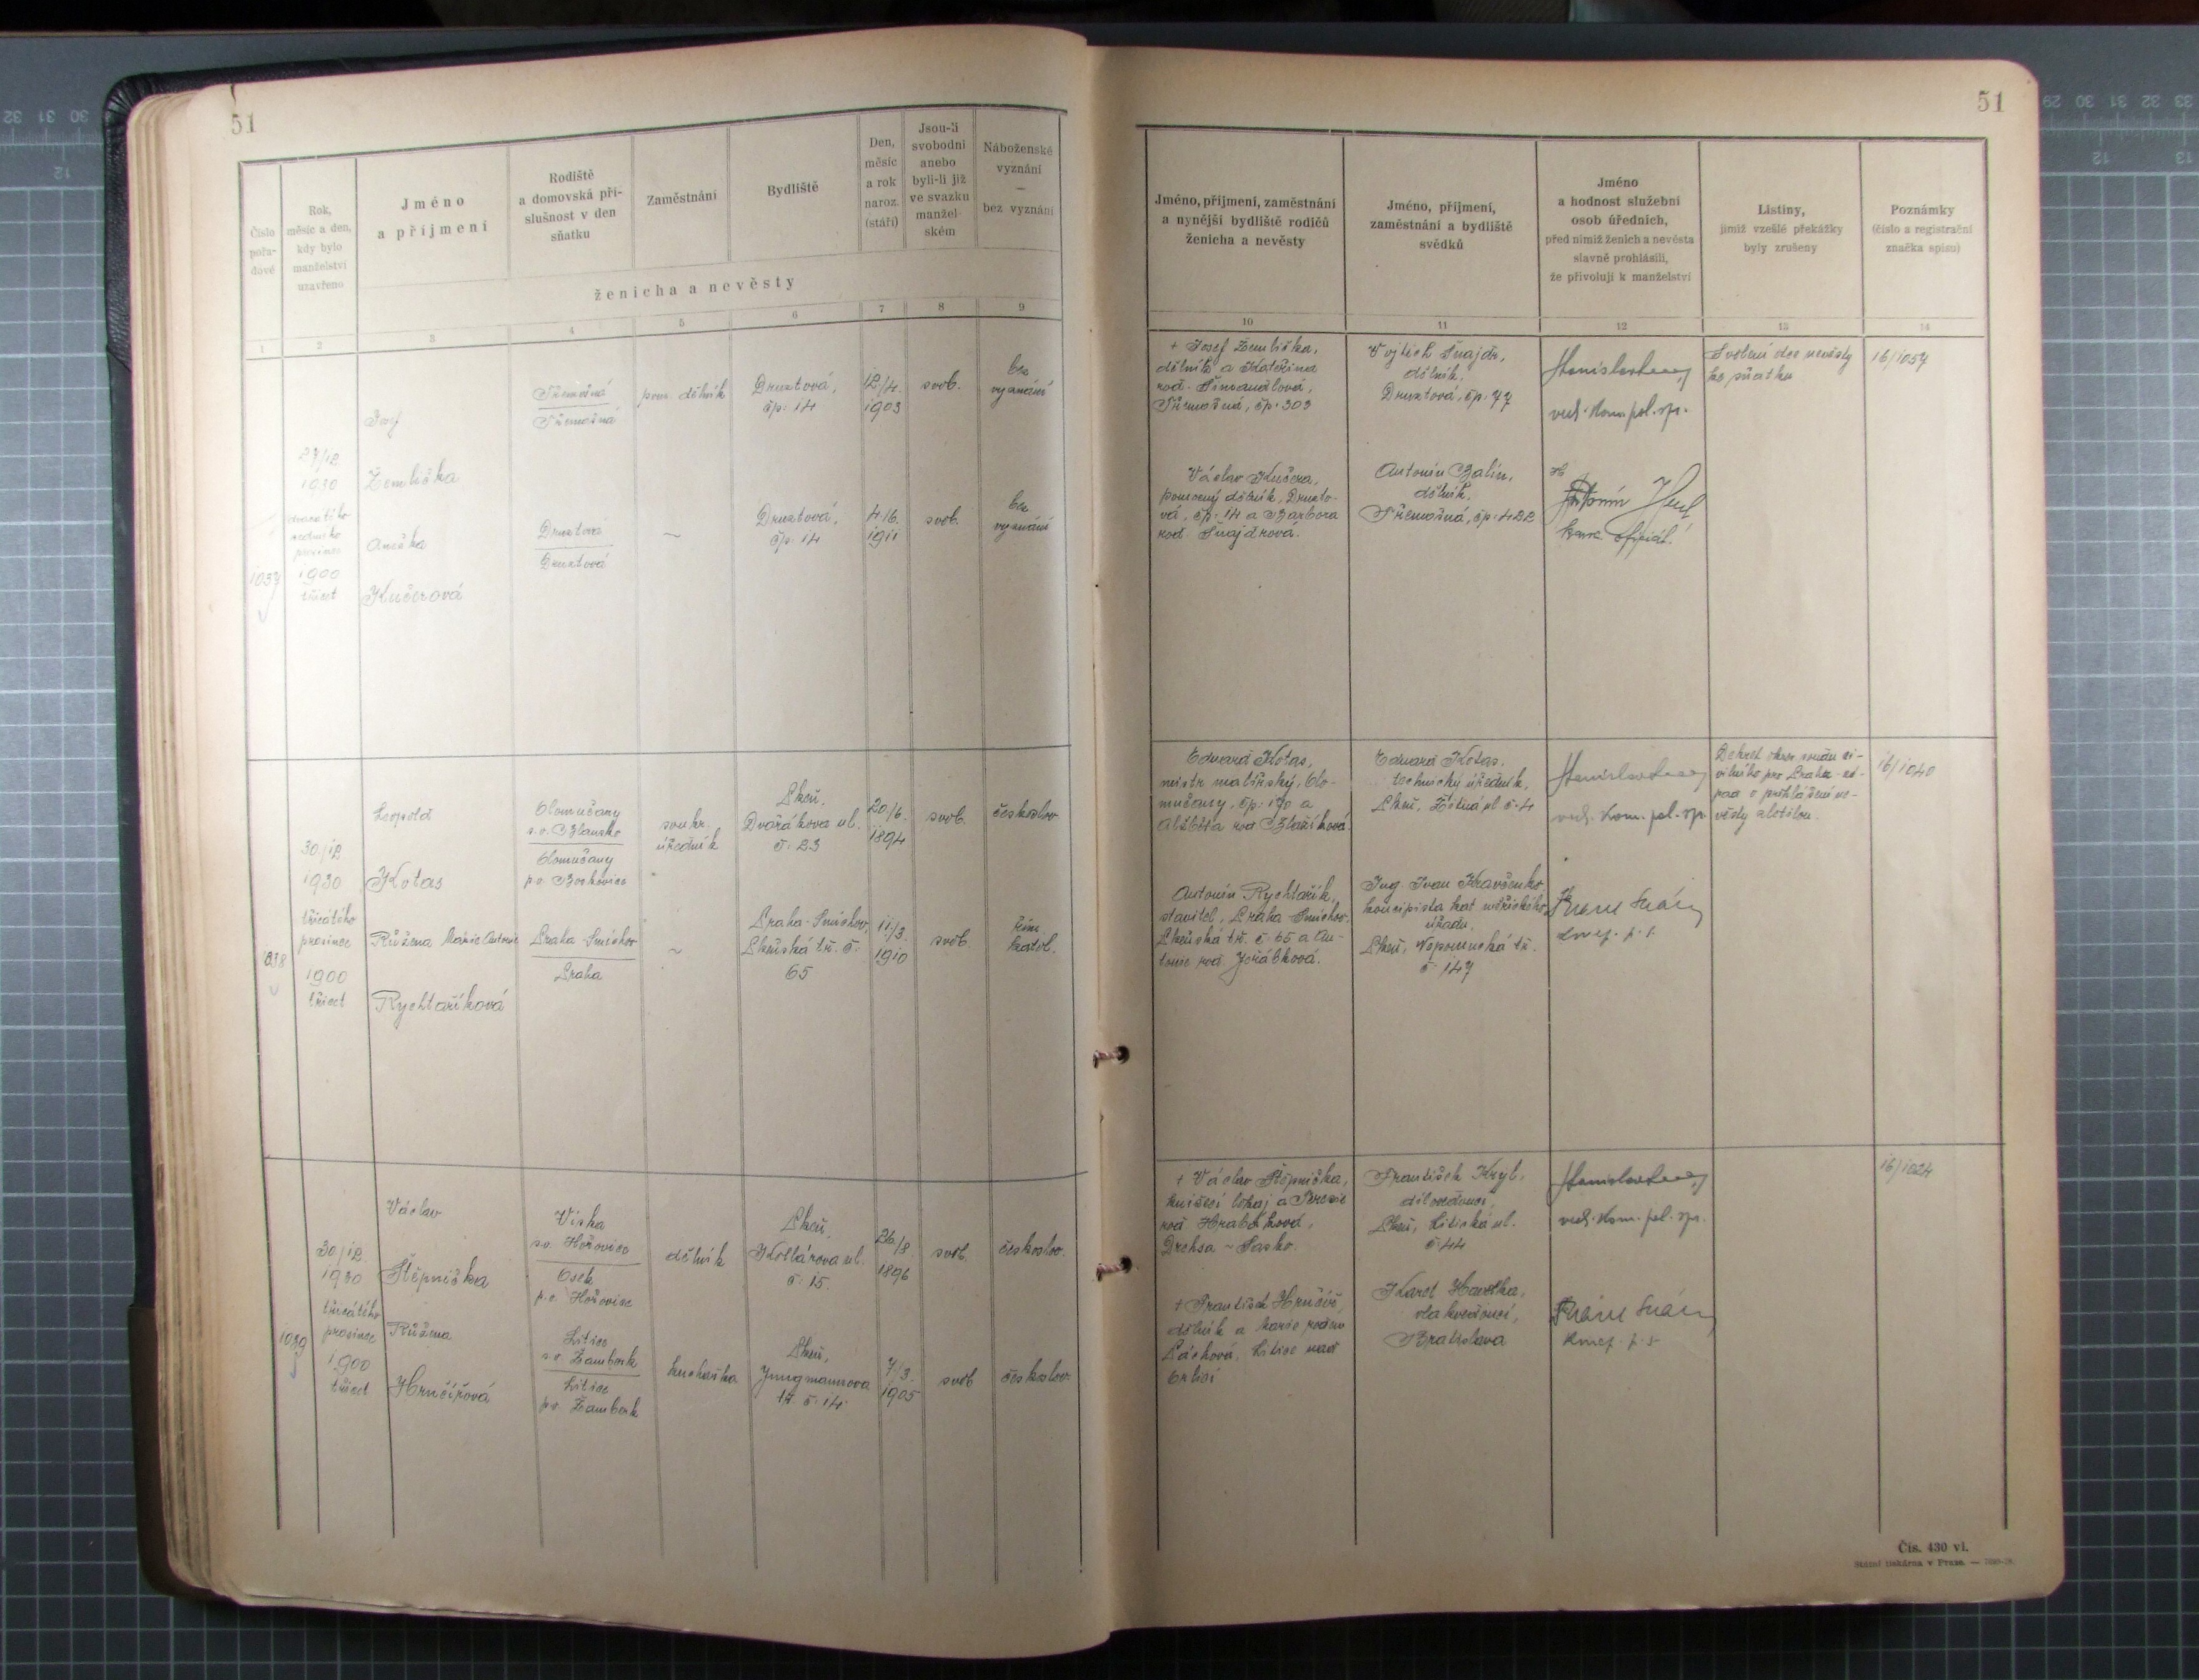 51
Číslo
pořa-
dové
Rok,
měsíc a den,
kdy bylo
manželství
uzavřeno
Jméno
a příjmení
Rodiště
a domovská pří-
slušnost v den
sňatku
Zaměstnání
Bydliště
Den,
měsíc
a rok
naroz.
(stáří)
Jsou-li
svobodni
anebo
byli-li již
ve svazku
manžel-
ském
Náboženské
vyznání
—
bez vyznání
ženicha a nevěsty
1 2 3 4 5 6 7 8 9
1037
27/12
1930
dvacátého
sedmého
prosince
1900
třicet
Josef
Žemlička
Třemošná
Třemošná
pom. dělník
Druztová,
čp. 14
12/4.
1903
svob.
bez
vyznání
Anežka
Kučerová
Druztová
Druztová
~
Druztová,
čp. 14
4/6.
1911
svob.
bez
vyznání
1038
30./12
1930
třicátého
prosince
1900
třicet
Leopold
Kotas
Olomučany
s.o. Blansko
Olomučany
p.o. Boskovice
soukr.
úředník
Plzeň,
Dvořákova ul.
č. 23
20/6.
1894
svob.
českoslov.
Růžena Marie Antonie
Rychtaříková
Praha-Smíchov
Praha
~
Praha-Smíchov,
Plzeňská tř. č.
65
11./3.
1910
svob.
řím.
katol.
1039
30/12.
1930
třicátého
prosince
1900
třicet
Václav
Štěpnička
Viska
s.o. Hořovice
Osek
p.o. Hořovice
dělník
Plzeň,
Kollárova ul.
č. 15.
26/8.
1896
svob.
českoslov.
Růžena
Hrnčířová
Litice
s.o. Žamberk
Litice
p.o. Žamberk
kuchařka
Plzeň,
Jungmannova
tř. č. 14.
7/3.
1905
svob.
českoslov.
51
Jméno, příjmení, zaměstnání
a nynější bydliště rodičů
ženicha a nevěsty
Jméno, příjmení,
zaměstnání a bydliště
svědků
Jméno
a hodnost služební
osob úředních,
před nimiž ženich a nevěsta
slavně prohlásili,
že přivolují k manželství
Listiny,
jimiž vzešlé překážky
byly zrušeny
Poznámky
(číslo a registrační
značka spisu)
10 11 12 13 14
+ Josef Žemlička,
dělník a Kateřina
roz. Šimandlová,
Třemošná, čp. 303
Vojtěch Šnajdr,
dělník,
Druztová, čp. 77
vrch. kom. pol. spr.
Svolení otce nevěsty
ke sňatku
16/1037
Václav Kučera,
pomocný dělník, Druzto-
vá, čp. 14 a Barbora
roz. Šnajdrová.
Antonín Balín,
dělník,
Třemošná, čp. 422
Antonín
kanc. oficiál.
Eduard Kotas,
mistr malířský, Olo-
mučany, čp. 170 a
Alžběta roz. Blažíková.
Eduard Kotas,
technický úředník,
Plzeň, Žitná ul. č. 4
vrch. kom. pol. spr.
Dekret okres. soudu ci-
vilního pro Prahu-zá-
pad o prohlášení ne-
věsty zletilou.
16/1040
Antonín Rychtařík,
stavitel, Praha-Smíchov,
Plzeňská tř. č. 65 a An-
tonie roz. Jeřábková.
Ing. Ivan Kravčenko,
koncipista kat. měřického
úřadu,
Plzeň, Nepomucká tř.
č. 147
+ Václav Štěpnička,
knížecí lokaj a Terezie
roz. Hrabáková,
Drehsa ~ Sasko.
František Kryl,
dílovedoucí,
Plzeň, Litická ul.
č. 44
vrch. kom. pol. spr.
16/1024
+ František Hrnčíř,
dělník a Marie rozen.
Páchová, Litice nad
Orlicí
Karel Havelka,
vlakvedoucí,
Bratislava
Čís. 430 vl.
Státní tiskárna v Praze. —